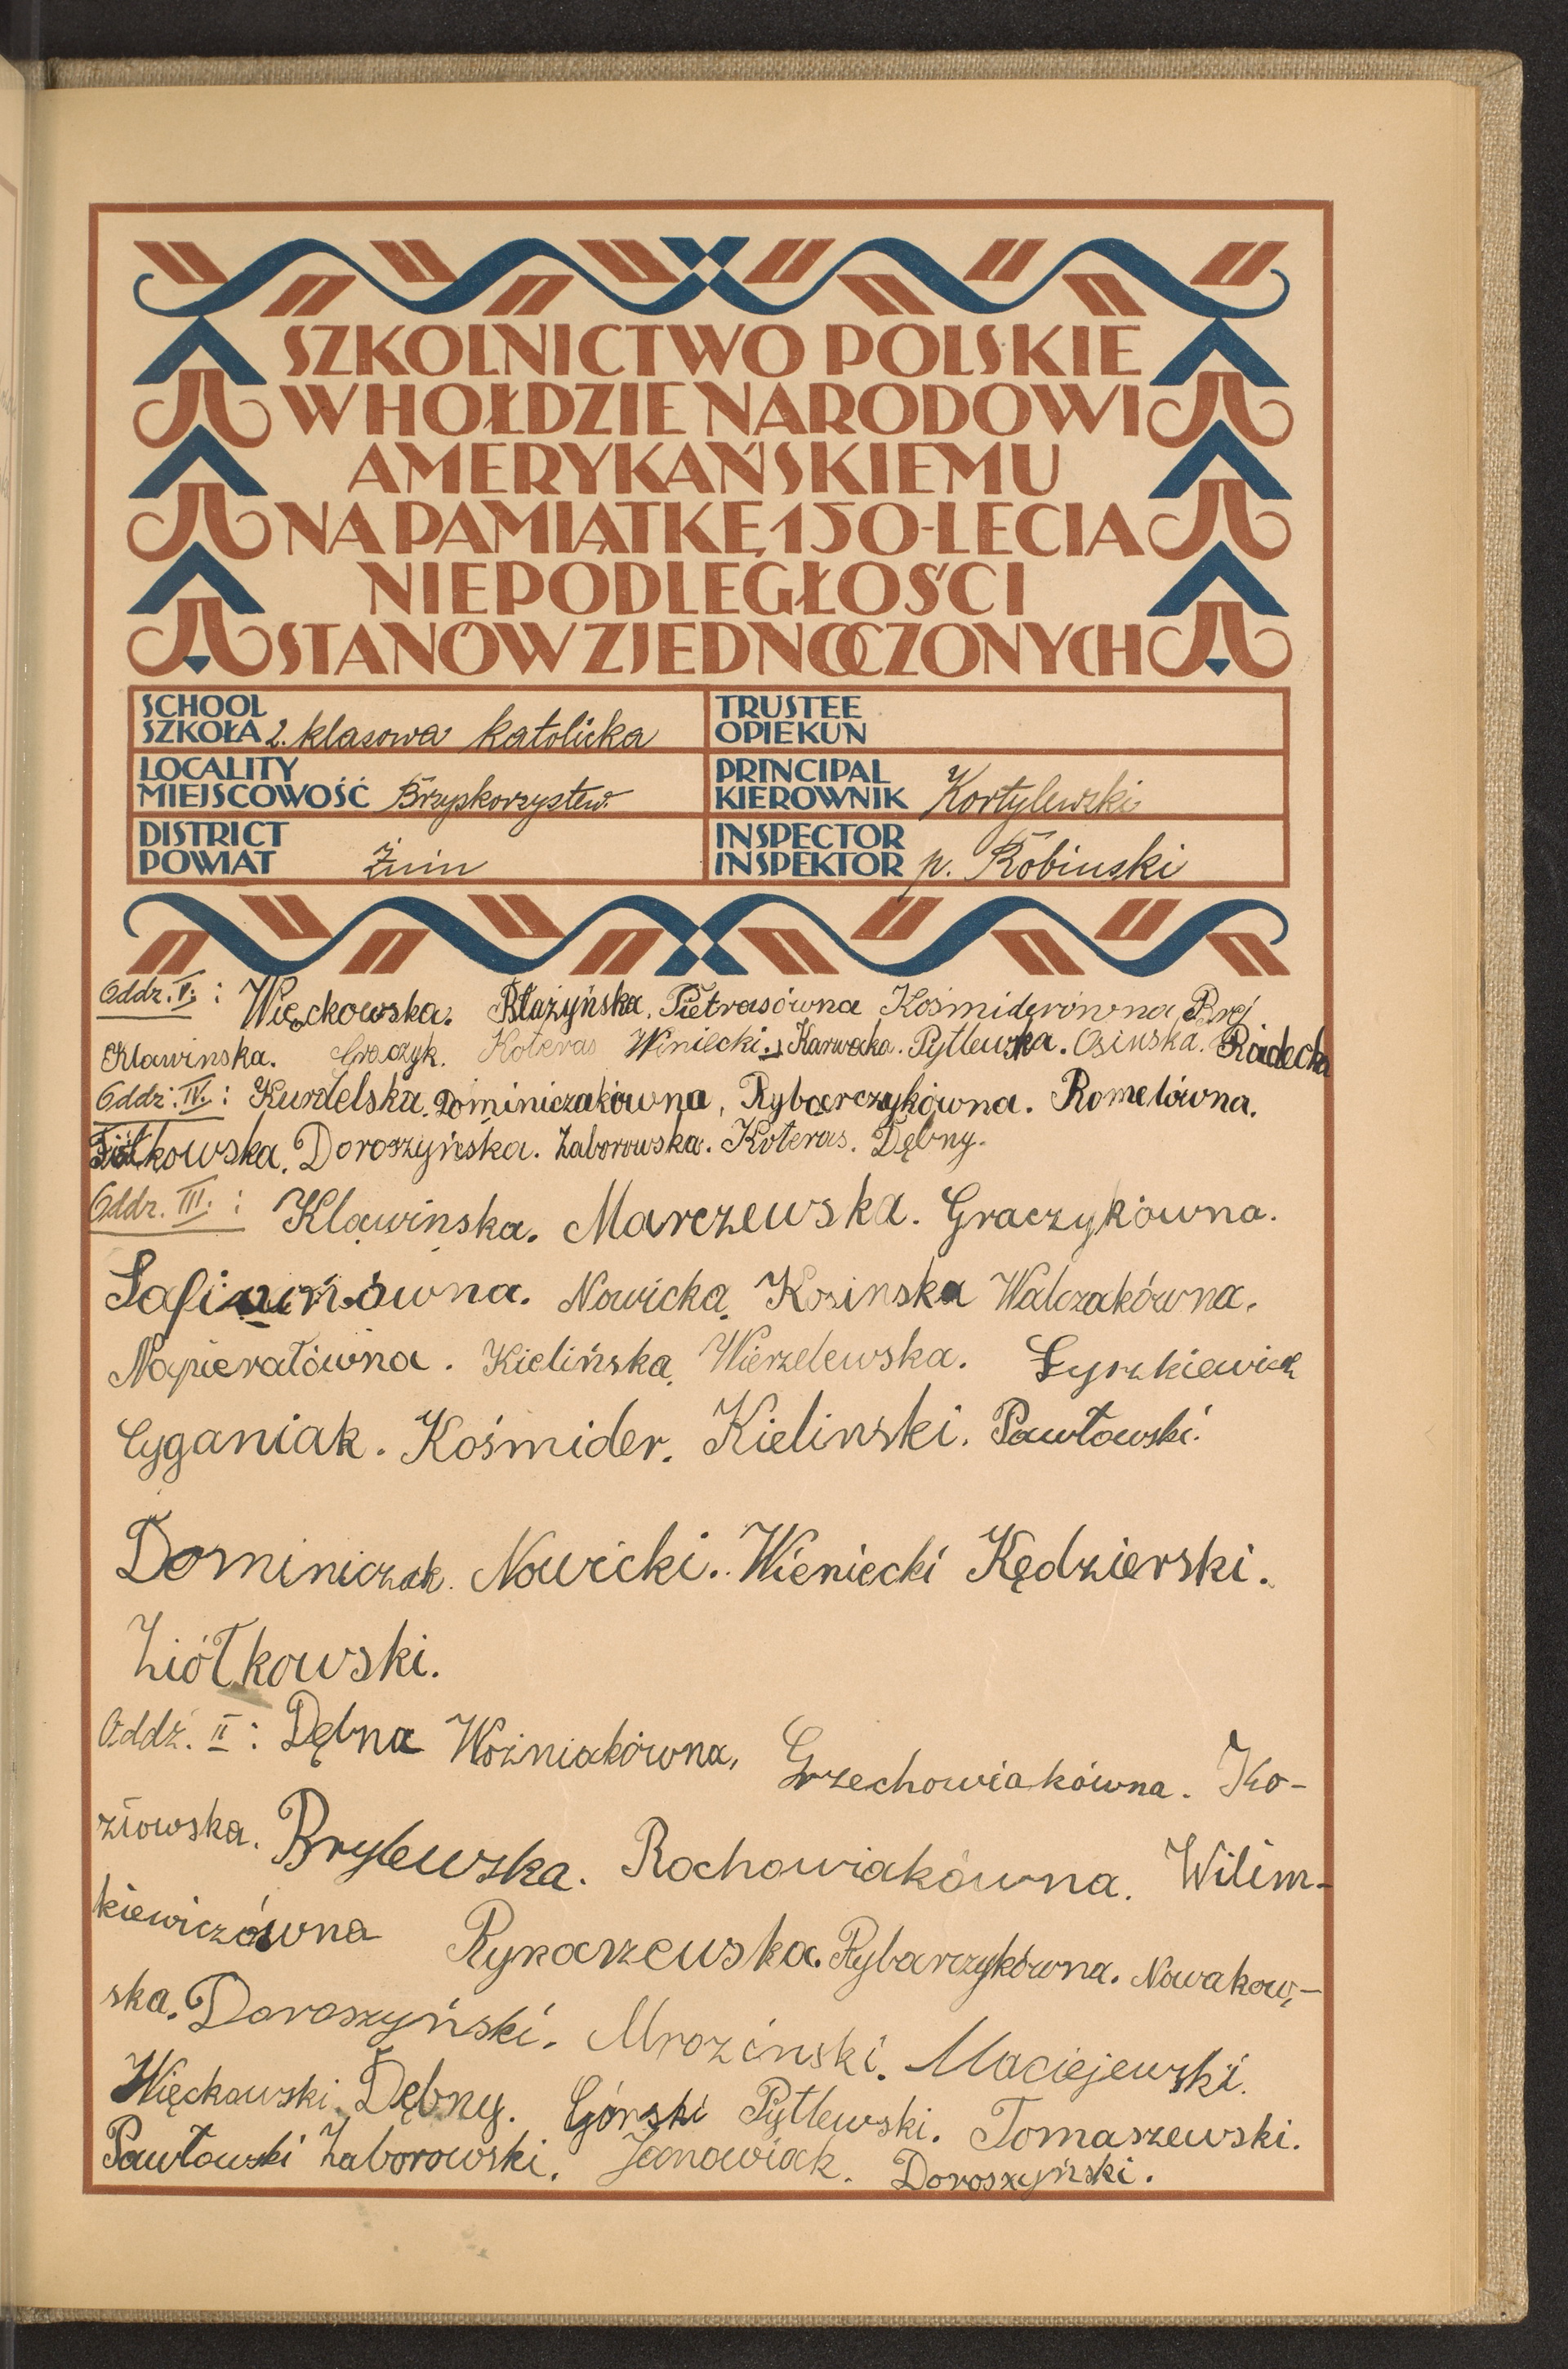 SZKOLNICTWO POLSKIE
W HOŁDZIE NARODOWI
AMERYKAŃSKIEMU
NA PAMIĄTKĘ 150-LECIA
NIEPODLEGŁOŚCI
STANÓW ZJEDNOCZONYCH
SCHOOL
SZKOŁA 2. klasowa katolicka
TRUSTEE
OPIEKUN
LOCALITY
MIEJSCOWOŚĆ Brzyskorzystew
PRINCIPAL
KIEROWNIK Kortylewski
DISTRICT
POWIAT Żnin
INSPECTOR
INSPEKTOR p. Robinski
Oddz. V. : Więckowska. Błażyńska. Pietrasówna Kośmiderówna Brej
Klawinska. Graczyk. Koteras Winiecki. Karwacka. Pytlewska. Osinska. Radecka
Oddz. IV. : Kurdelska. Dominiczakówna, Rybarczykówna. Romelówna.
Ziółkowska. Doroszyńska. Zaborowska. Koteras. Dębny.
Oddz. III. : Klawinska. Marczewska. Graczykówna.
Nowicka. Kosinska Walczakówna.
Napierałówna. Kielińska. Wierzelewska. Łyszkiewicz
Cyganiak. Kośmider. Kielinski. Pawłowski.
Dominiczak. Nowicki. Wieniecki Kędzierski.
Ziółkowski.
Oddz. II : Dębna Woźniakówna, Grzechowiakówna. Ko-
złowska. Brylewska. Rochowiakówna. Wilim-
kiewiczówna Rynarzewska. Rybarczykówna. Nowakow-
ska. Doroszyński. Mrozinski. Maciejewski.
Więckowski. Dębny. Górski Pytlewski. Tomaszewski.
Pawłowski Zaborowski. Janowiak. Doroszyński.